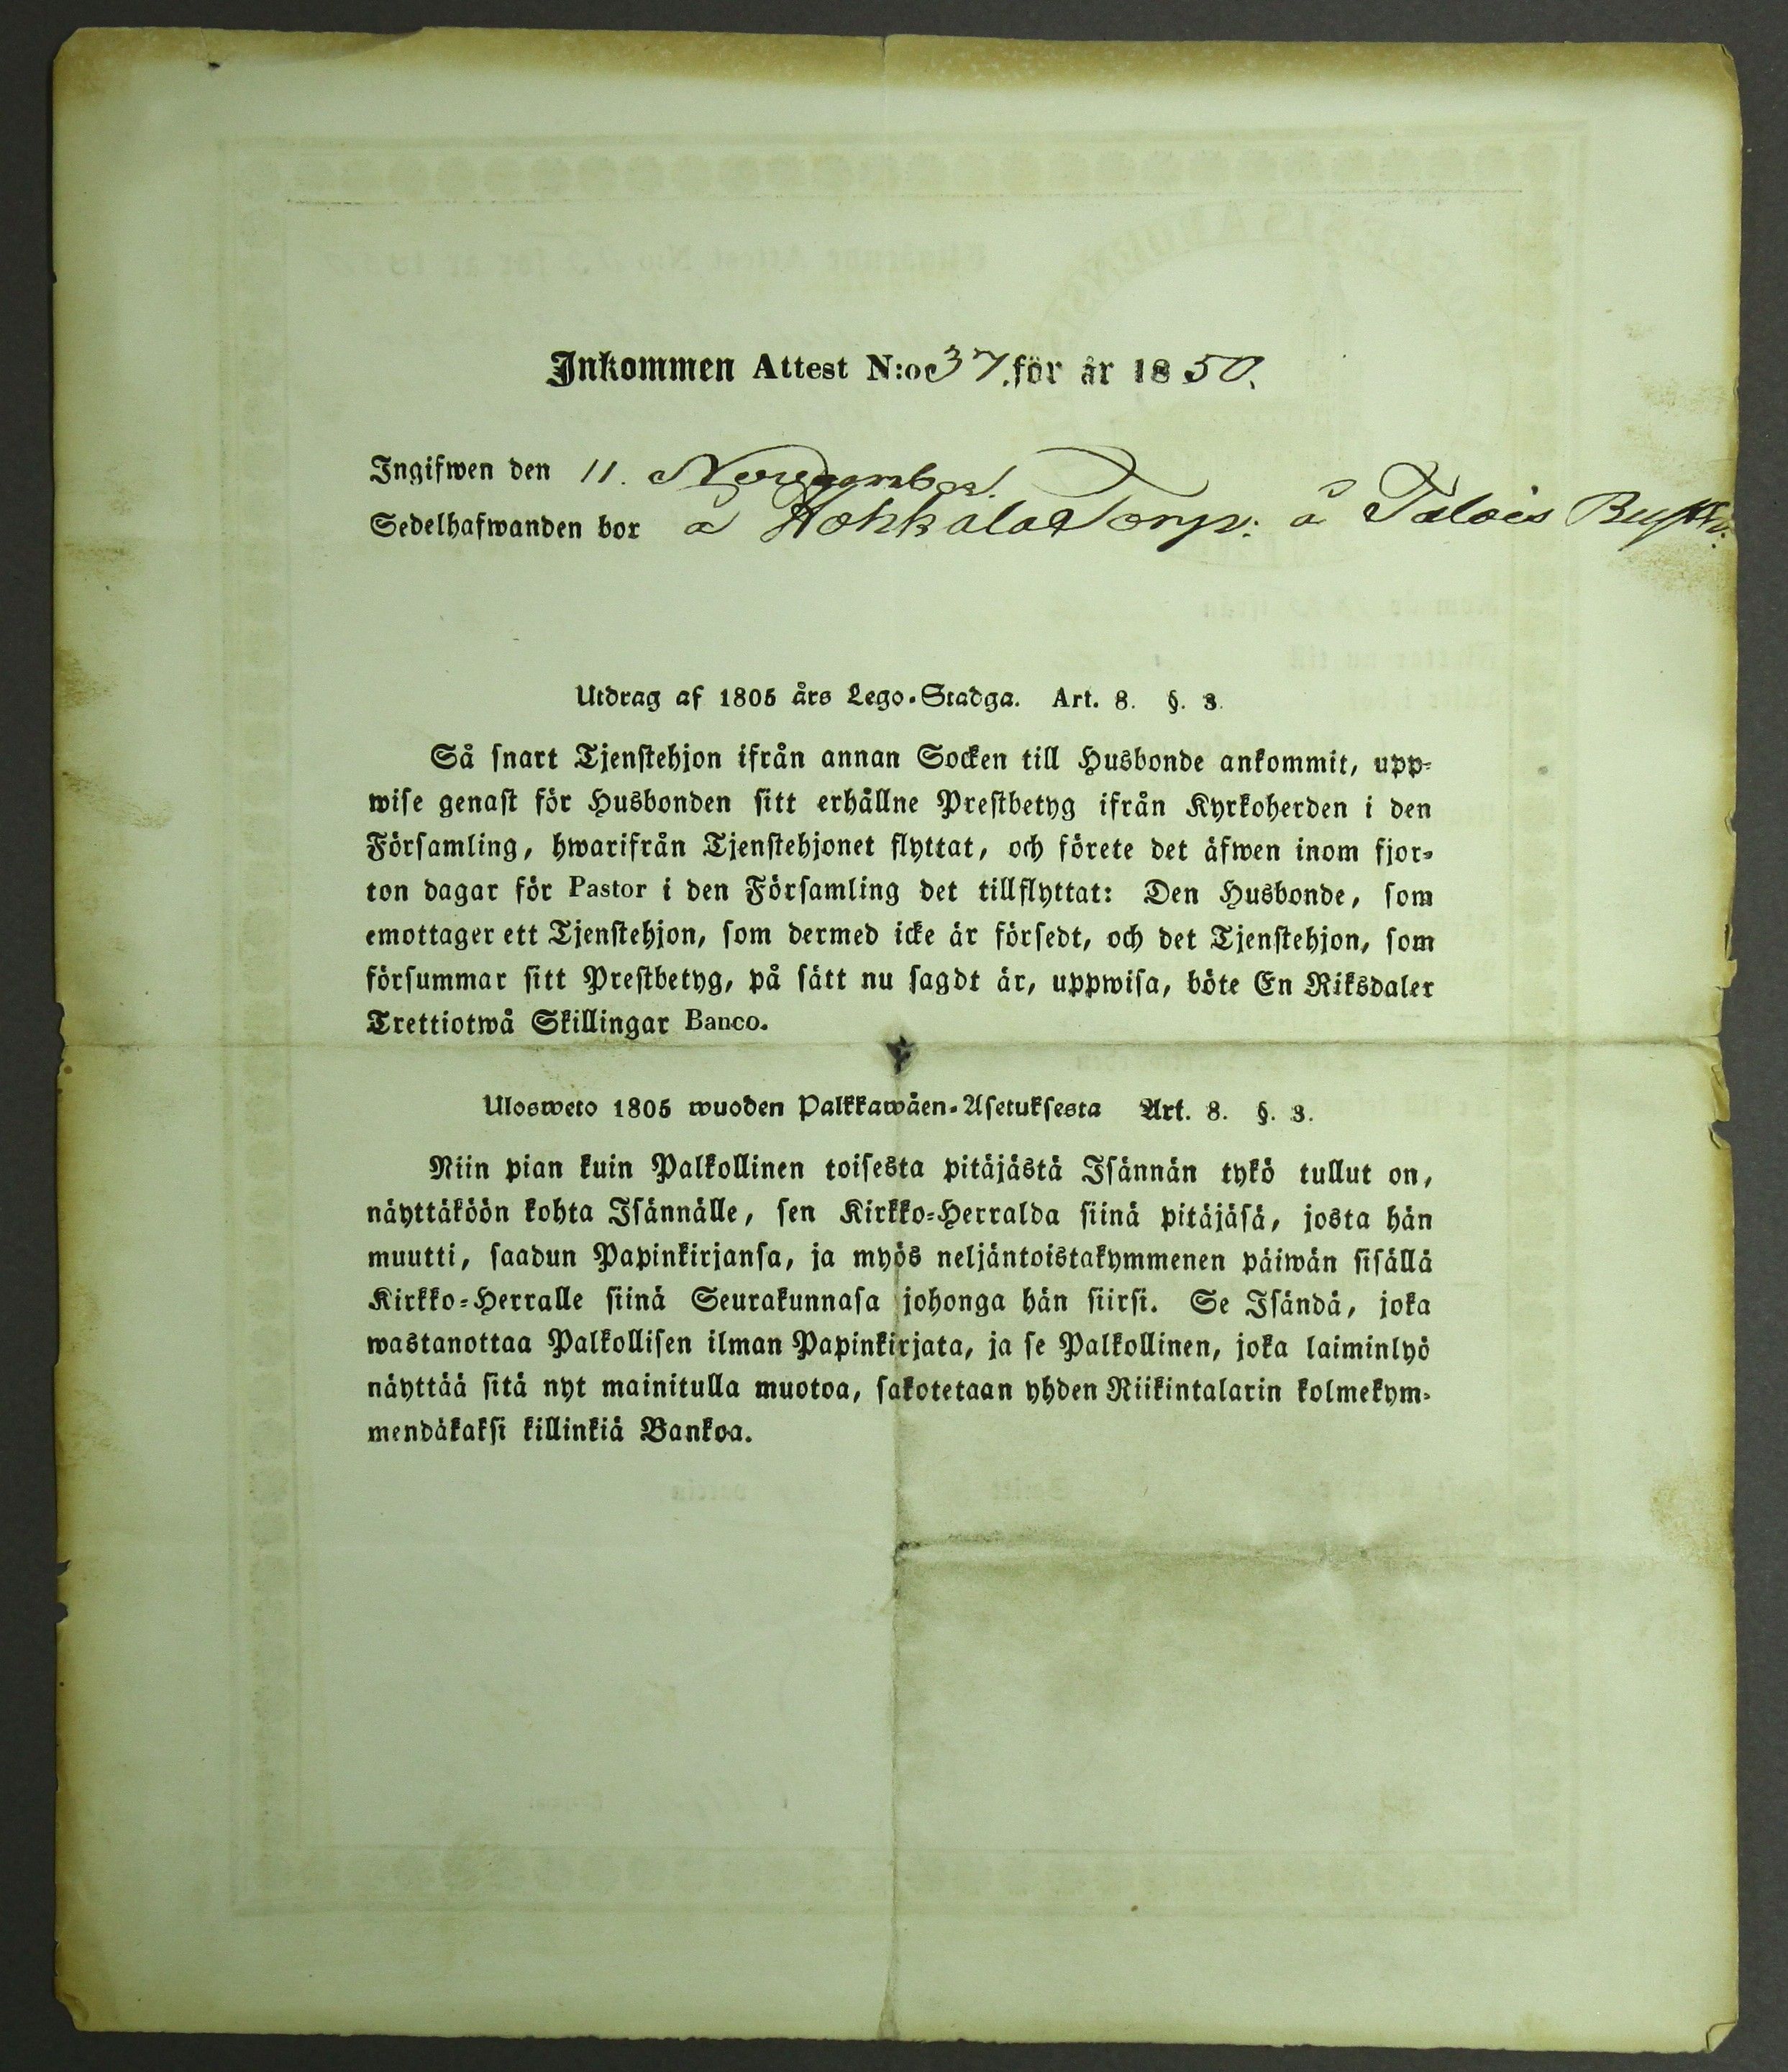 Inkommen Attest N:o 37. för år 1850.
Ingifwen den 11. November.
Sedelhafwanden bor å Hokkala Torp. å Talois
Utdrag af 1805 års Lego-Stadga. Art. 8. §. 3.
Så snart Tjenstehjon ifrån annan Socken till Husbonde ankommit, upp-
wise genast för Husbonden sitt erhållne Prestbetyg ifrån Kyrkoherden i den
Församling, hwarifrån Tjenstehjonet flyttat, och förete det äfwen inom fjor-
ton dagar för Pastor i den Församling det tillflyttat: Den Husbonde, som
emottager ett Tjenstehjon, som dermed icke är försedt, och det Tjenstehjon, som
försummar sitt Prestbetyg, på sätt nu sagdt är, uppwisa, böte En Riksdaler
Trettiotwå Skillingar Banco.
Ulosweto 1805 wuoden Palkkawäen-Asetuksesta Art. 8. §. 3.
Niin pian kuin Palkollinen toisesta pitäjästä Isännän tykö tullut on,
näyttäköön kohta Isännälle, sen Kirkko-Herralda siinä pitäjäsä, josta hän
muutti, saadun Papinkirjansa, ja myös neljäntoistakymmenen päiwän sisällä
Kirkko-Herralle siinä Seurakunnasa johonga hän siirsi. Se Isändä, joka
wastanottaa Palkollisen ilman Papinkirjata, ja se Palkollinen, joka laiminlyö
näyttää sitä nyt mainitulla muotoa, sakotetaan yhden Riikintalarin kolmekym-
mendäkaksi killinkiä Bankoa.